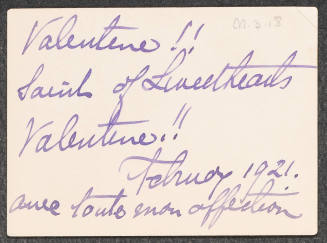 m.3.18
Valentine !!
Saints of Sweethearts
Valentine !!
February 1921.
avec toute mon affection